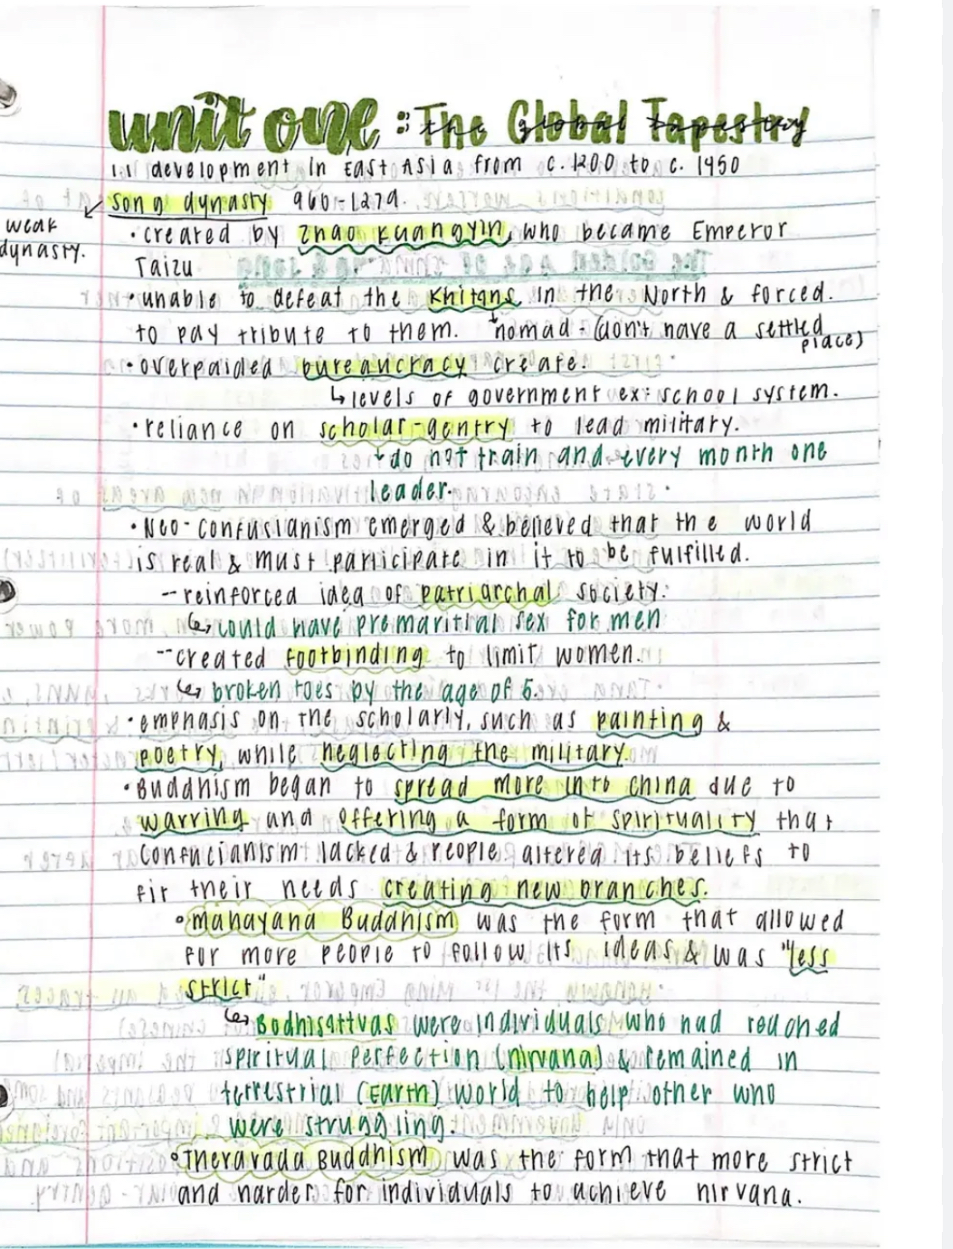 unit one : The Global Tapestry
1.1 development in East Asia from c. 1200 to c. 1450
song dynasty 960-1279.
weak
dynasty.
• created by Zhao Kuangyin, who became Emperor
Taizu
• unable to defeat the Khitans in the North & forced.
to pay tribute to them. nomad - (don't have a settled
place)
• overpaided bureaucracy create.
↳ levels of government ex: school system.
• reliance on scholar-gentry to lead military.
do not train and every month one
leader.
• Neo-Confucianism emerged & believed that the world
is real & must participate in it to be fulfilled.
- reinforced idea of patriarchal society.
↳ could have premaritial sex for men
- created footbinding to limit women.
↳ broken toes by the age of 5.
• emphasis on the scholarly, such as painting &
poetry, while neglecting the military.
• Buddhism began to spread more into China due to
warring and offering a form of spirituality that
Confucianism lacked & people altered its beliefs to
fit their needs creating new branches.
• Mahayana Buddhism was the form that allowed
for more people to follow its ideas & was "less
strict"
↳ Bodhisattvas were individuals who had reached
spiritual perfection (nirvana) & remained in
terrestrial (Earth) world to help other who
were struggling.
• Theravada Buddhism was the form that more strict
and harder for individuals to achieve nirvana.